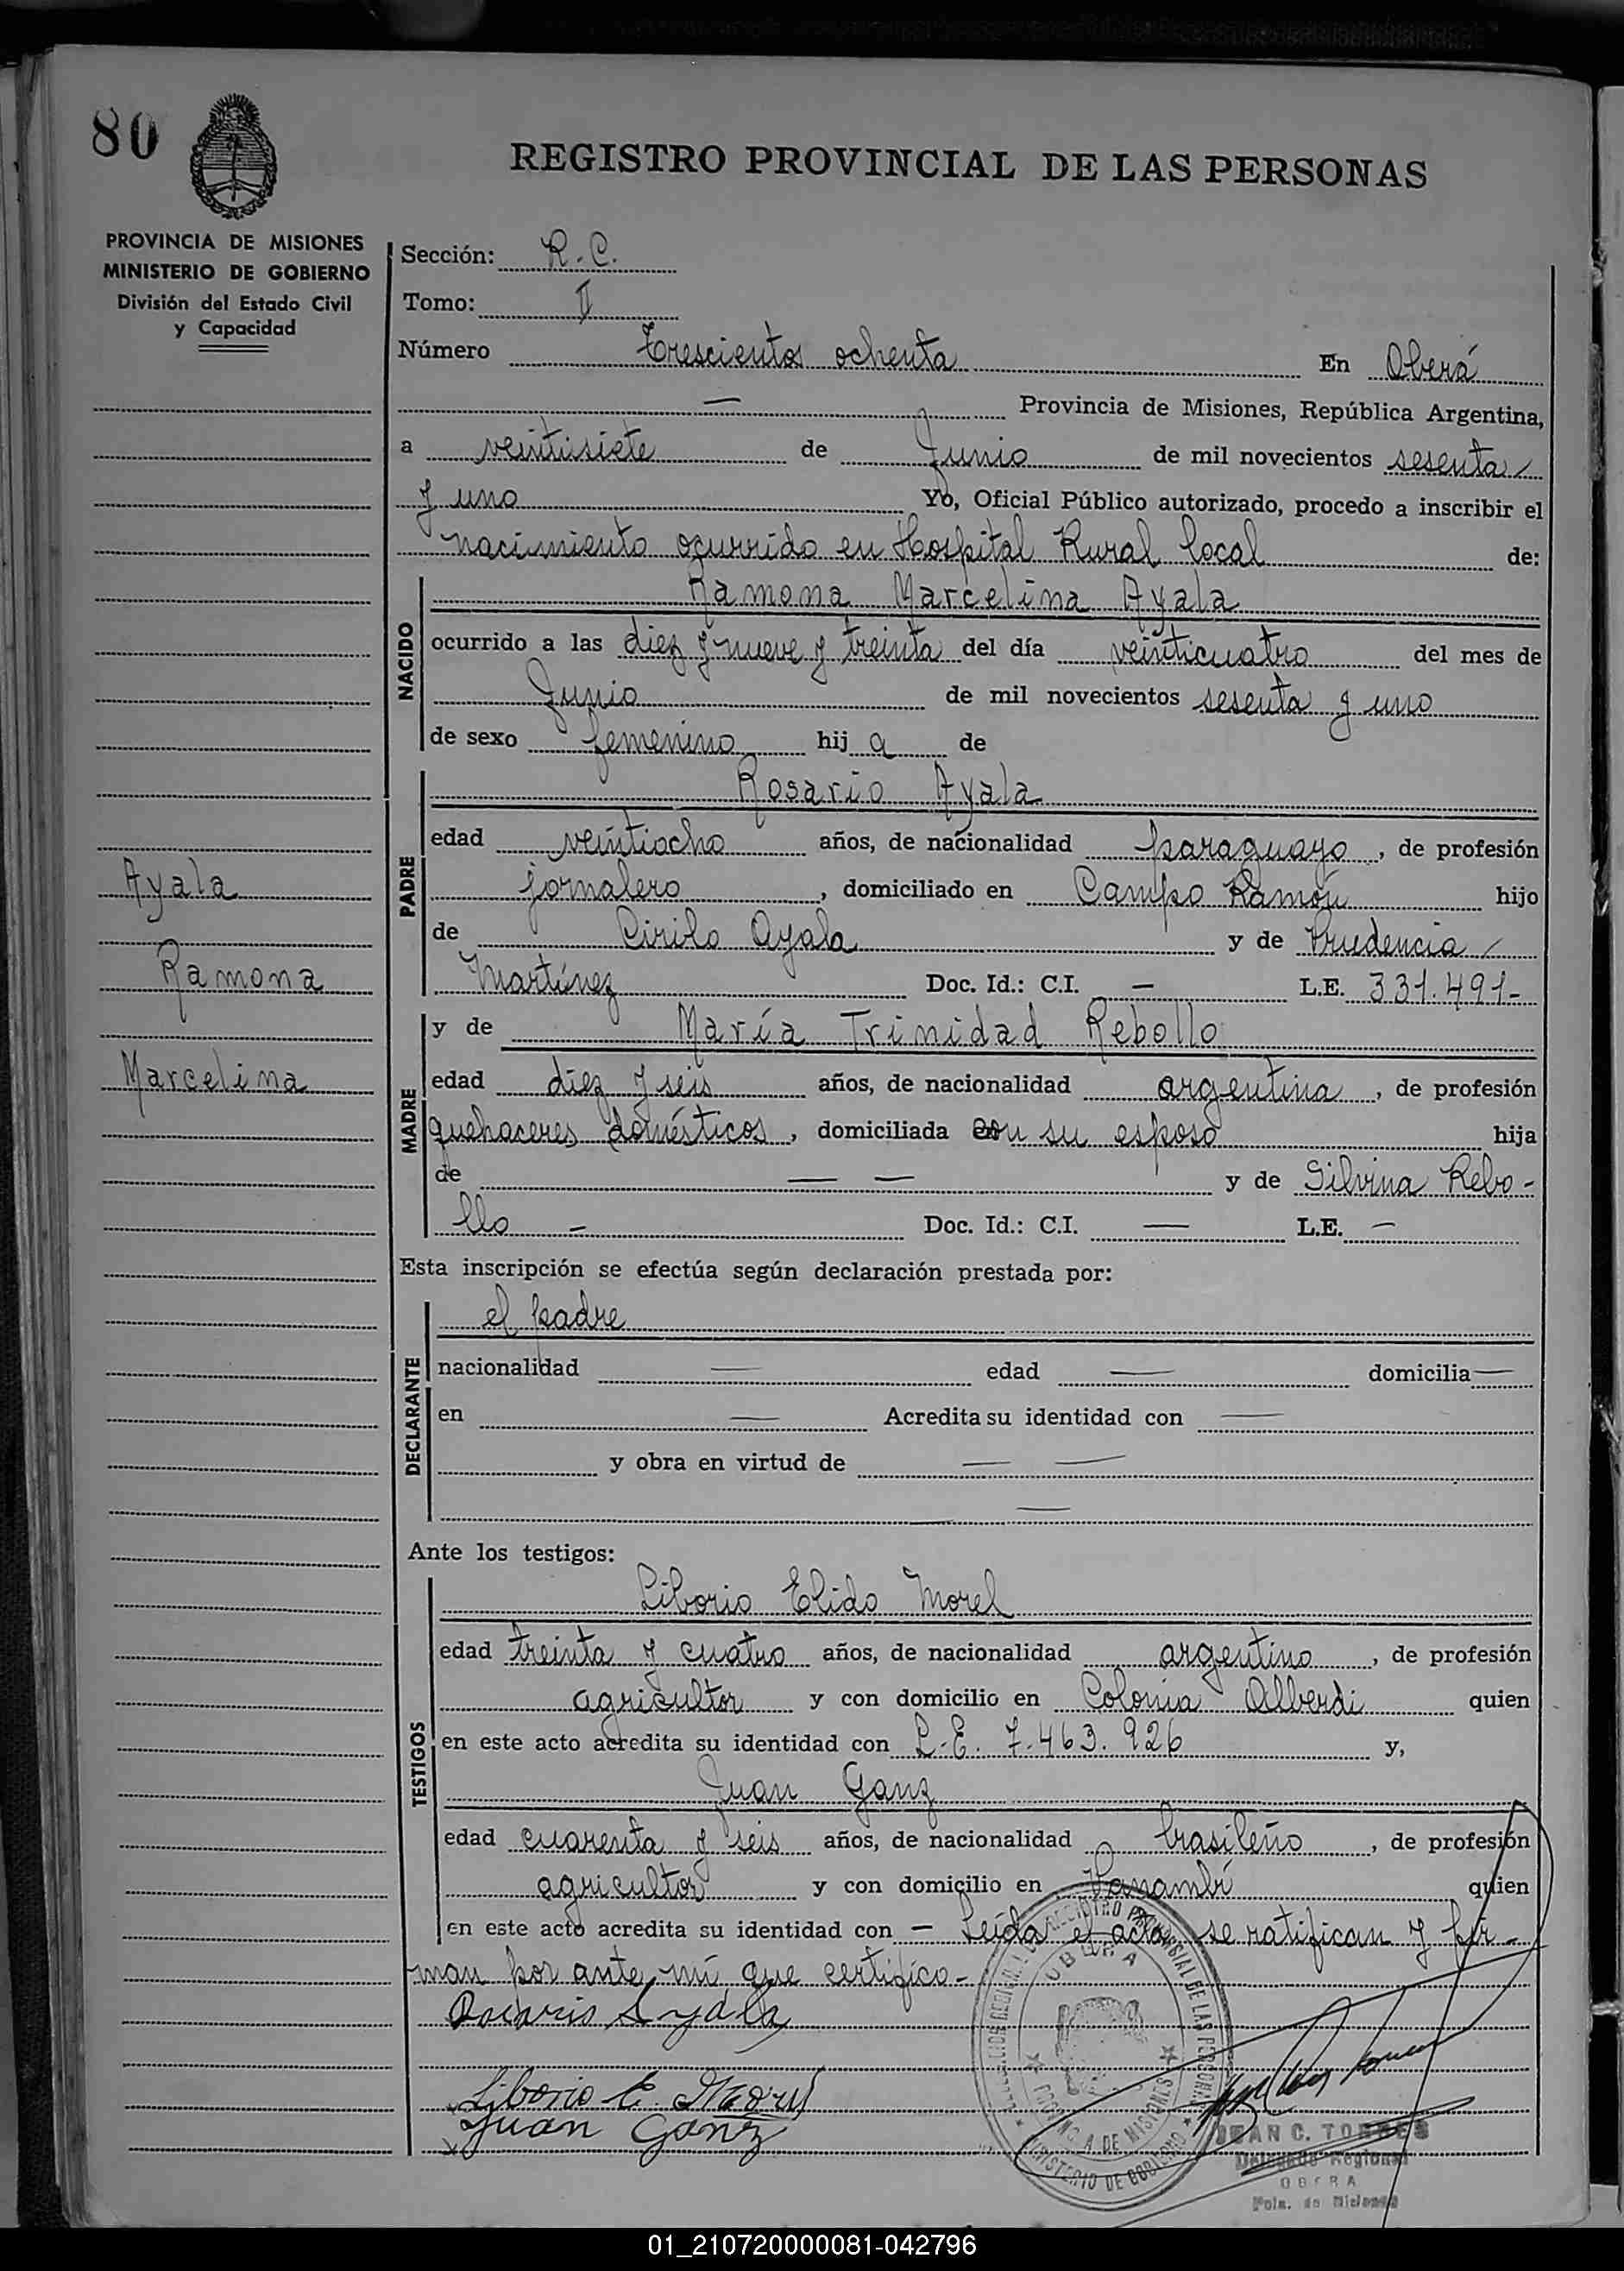 80
REGISTRO PROVINCIAL DE LAS PERSONAS
PROVINCIA DE MISIONES
MINISTERIO DE GOBIERNO
División del Estado Civil
y Capacidad
Sección: R. C.
Tomo: II
Número Trescientos ochenta En Oberá
— Provincia de Misiones, República Argentina,
a veintisiete de Junio de mil novecientos sesenta
y uno Yo, Oficial Público autorizado, procedo a inscribir el
nacimiento ocurrido en Hospital Rural local de:
NACIDO
Ramona Marcelina Ayala
ocurrido a las diez y nueve y treinta del día veinticuatro del mes de
Junio de mil novecientos sesenta y uno
de sexo femenino hij a de
PADRE
Rosario Ayala
edad veintiocho años, de nacionalidad paraguayo, de profesión
jornalero, domiciliado en Campo Ramón hijo
de Cirilo Ayala y de Prudencia
Martínez Doc. Id.: C.I. — L.E. 331.491-
Ayala
Ramona
Marcelina
MADRE
y de María Trinidad Rebollo
edad diez y seis años, de nacionalidad argentina, de profesión
quehaceres domésticos, domiciliada con su esposo hija
de — — y de Silvina Rebo-
llo - Doc. Id.: C.I. — L.E. —
Esta inscripción se efectúa según declaración prestada por:
DECLARANTE
el padre
nacionalidad — edad — domicilia —
en — Acredita su identidad con —
y obra en virtud de — —
— —
Ante los testigos:
TESTIGOS
Liborio Elido Morel
edad treinta y cuatro años, de nacionalidad argentino, de profesión
agricultor y con domicilio en Colonia Alberdi quien
en este acto acredita su identidad con L.E. 7.463.926 y,
Juan Ganz
edad cuarenta y seis años, de nacionalidad brasileño, de profesión
agricultor y con domicilio en Panambí quien
en este acto acredita su identidad con — Leída el acta, se ratifican y fir-
man por ante mí que certifico-
Rosario Ayala
Liborio E. Morel
Juan Ganz
REGISTRO PROVINCIAL DE LAS PERSONAS
OBERA
PROVINCIA DE MISIONES
MINISTERIO DE GOBIERNO
JUAN C. TORRES
Delegado Regional
OBERA
Pcia. de Misiones
01_210720000081-042796